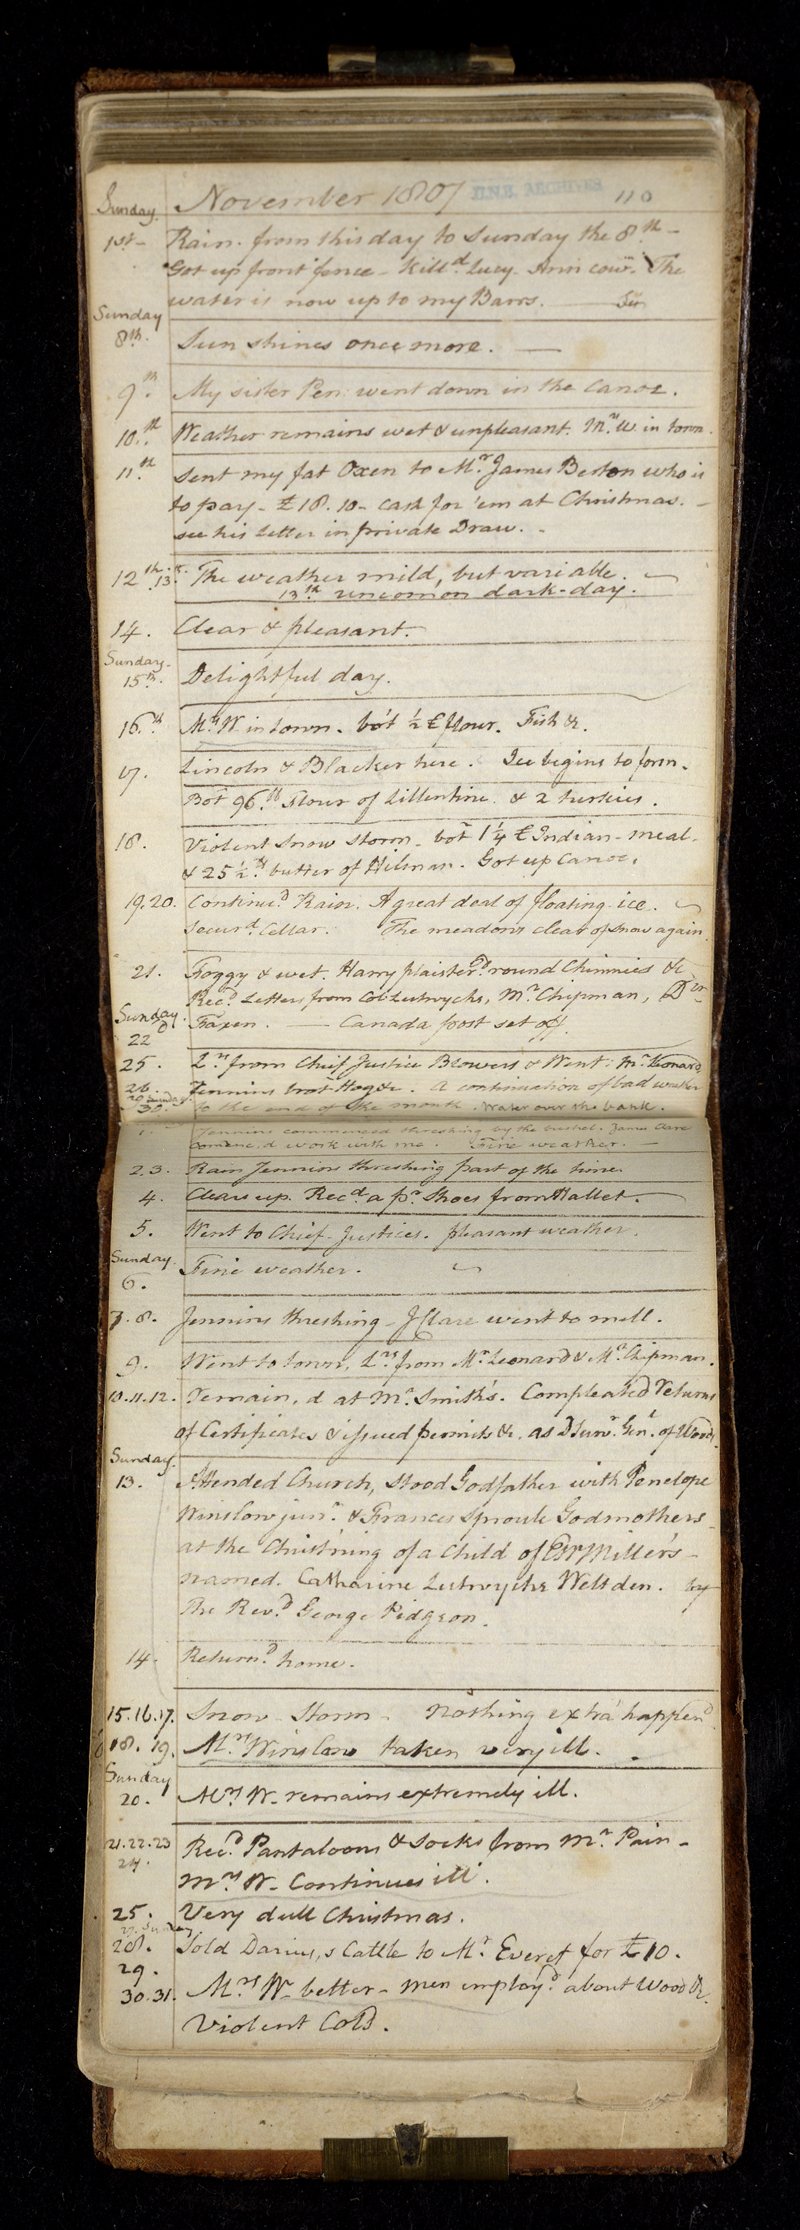 Sunday. November 1807 U.N.B. ARCHIVES 110
1st - Rain. from this day to Sunday the 8th -
Got up front fence - Kill.d Lucy Ann cow. The
water is now up to my Barrs.
Sunday
8th. Sun shines once more. —
9th. My sister Pen: went down in the Canoe.
10.th Weather remains wet & unpleasant. Mrs W in town.
11.th Sent my fat Oxen to Mr. James Beston who is
to pay - £18.10 - cash for 'em at Christmas. -
see his Letter in private Draw. -
12th.13th. The weather mild, but variable.
13th uncomon dark-day.
14. Clear & pleasant.
Sunday.
15th. Delightful day.
16.th Mrs W in town. bo't ½ C flour. Fish &c.
17. Lincoln & Blacker here. Ice begins to form.
Bot 96.lb Flour of Lillentine. & 2 turkies.
18. Violent Snow Storm - bot 1¼ C Indian - meal -
& 25½ lb butter of Hilman. Got up Canoe.
19.20. Continu'd Rain. A great deal of floating ice.
Secur.d Cellar. The meadows clear of snow again.
21. Foggy & wet. Harry plaister'd round Chimnies &c
Rec.d Letters from Col Lutwyche, Mr. Chipman, Dr
Sunday.
22d Faxen. — Canada post set off.
25. Lrs from Chief Justice Blowers & Went: Mr. Leonard
26. Jennins bro't Hog &c. A continuation of bad weather
Sunday.
30. to the end of the month. Water over the bank.
1. Jennins commenced threshing by the bushel. James Clare
Comenc,d work with me. Fine weather. —
2.3. Rain Jennins threshing part of the time.
4. Clears up. Rec.d a pr. Shoes from Hallet.
5. Went to Chief Justices. pleasant weather.
Sunday.
6. Fine weather.
7.8. Jennins threshing - J Clare went to mill.
9. Went to town, Lrs from Mr. Leonard & Mr. Chipman.
10.11.12. Remain,d at Mr. Smith's. Compleated Returns
of Certificates & issued permits &c. as D Surv.r Gen.l of Woods.
Sunday.
13. Attended Church, stood Godfather with Penelope
Winslow junr. & Frances Sproule Godmothers -
at the Christ'ning of a Child of EW Miller's -
named. Catharine Lutwyche Weltden. by
The Rev.d George Pidgeon.
14. Return.d home.
15.16.17. Snow - Storm - Nothing extra' happen'd
18. 19. Mrs Winslow taken very ill. -
Sunday
20. Mrs W - remains extremely ill.
21.22.23
24. Rec.d Pantaloons & Socks from Mr. Pain -
Mrs W - Continues ill.
25. Very dull Christmas.
27. Sunday
28. Sold Darius,s Cattle to Mr. Everet for £10.
29.
30.31. Mrs W - better - men employ'd about Wood &c.
Violent Cold.